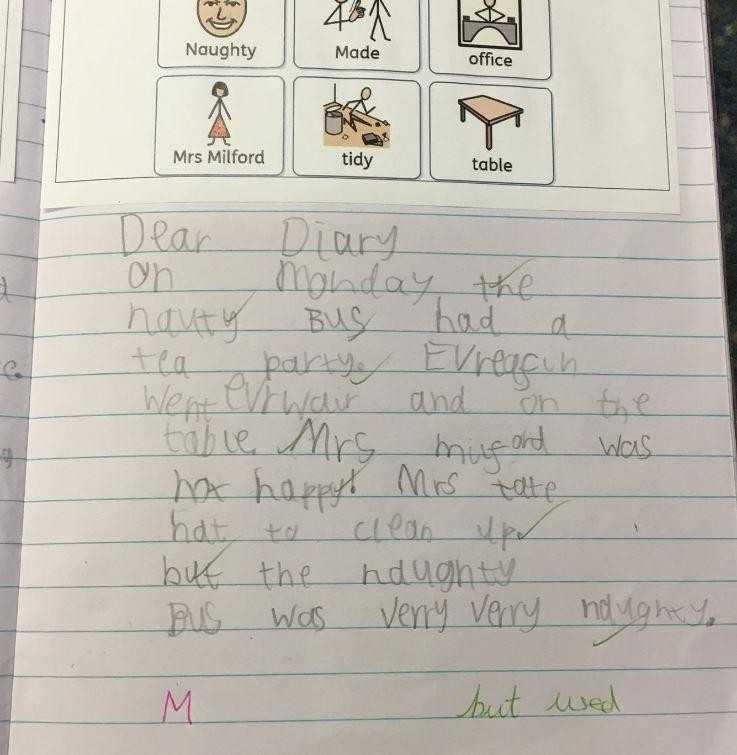 Naughty Made office
Mrs Milford tidy table
Dear Diary
on Monday the
nauty BUS had a
tea party. EVregfin
went evrwair and on the
table. Mrs milford was
not happy! Mrs tate
hat to clean up
but the naughty
BUS was verry verry naughty.
M but used